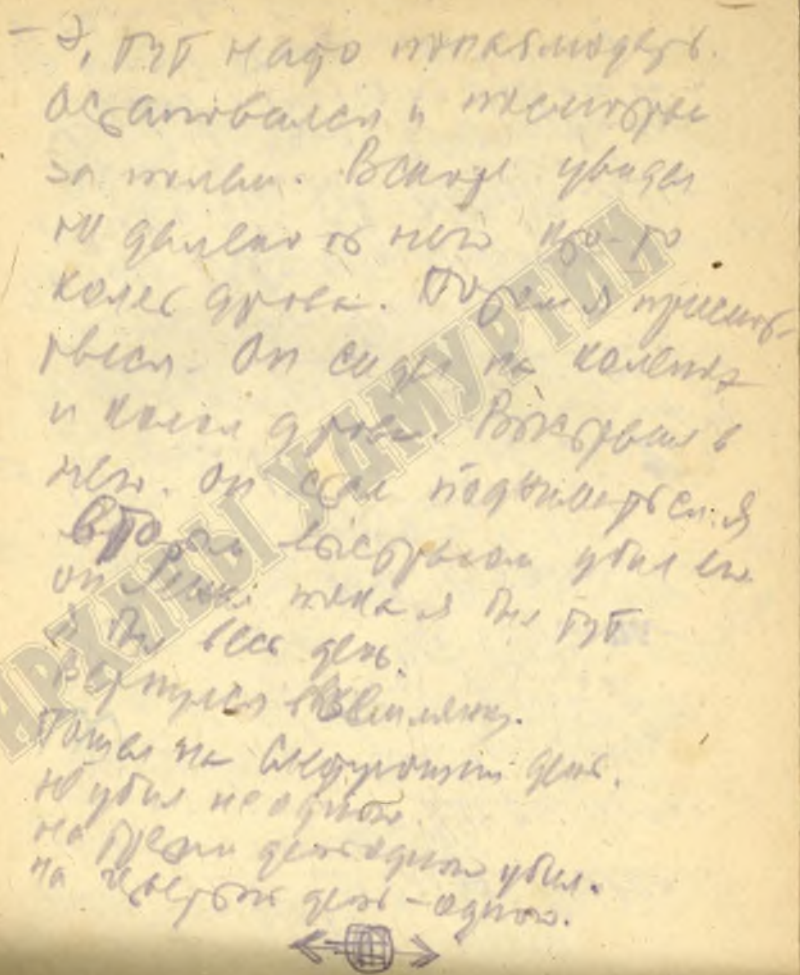 – Э, тут надо понаблюдать.
Остановился и посмотрел
за полем. Вскоре увидел
не далеко от него кто-то
колет дрова. Потом я присмот-
релся. Он сидел на коленях
и колол дрова. Выстрелил в
него. Он стал подниматься. Я
вторым выстрелом убил его
он лежал пока я был тут
я был весь день.
Вернулся в землянку.
Пошел на следующий день.
Не убил не одного.
На третий день одного убил.
На четвертый день – одного.
АРХИВЫ УДМУРТИИ